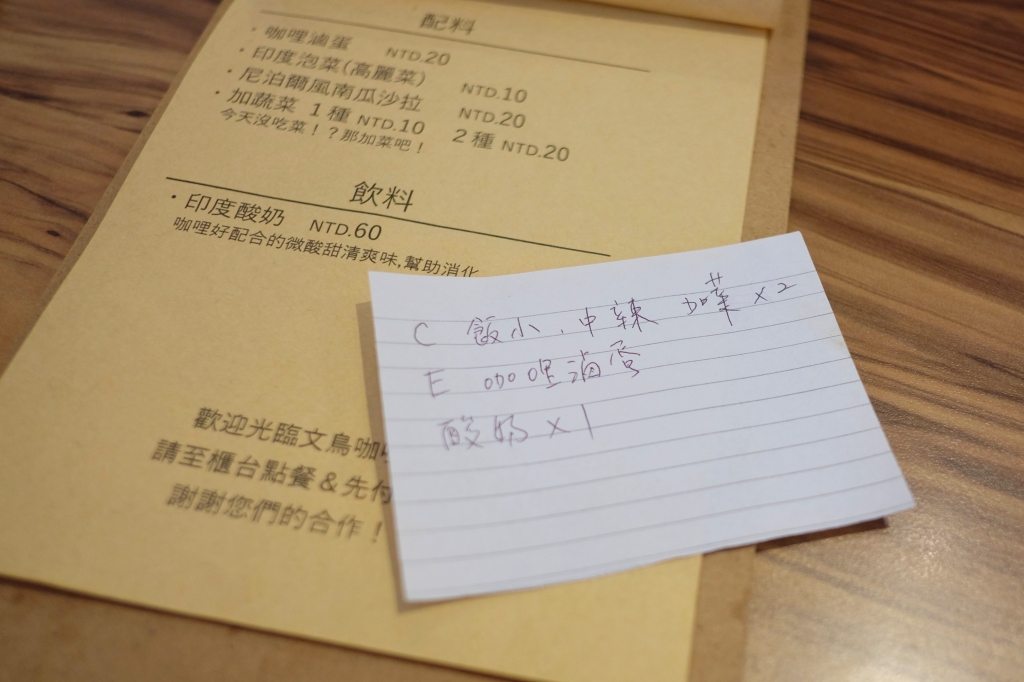 配料
・咖哩滷蛋 NTD.20
・印度泡菜(高麗菜) NTD.10
・尼泊爾風南瓜沙拉 NTD.20
・加蔬菜 1種 NTD.10 2種 NTD.20
今天沒吃菜！？那加菜吧！
飲料
・印度酸奶 NTD.60
咖哩好配合的微酸甜清爽味,幫助消化
歡迎光臨文鳥咖
請至櫃台點餐＆先付
謝謝您們的合作！
C 飯小、中辣 加菜 x2
E 咖哩滷蛋
酸奶 x1